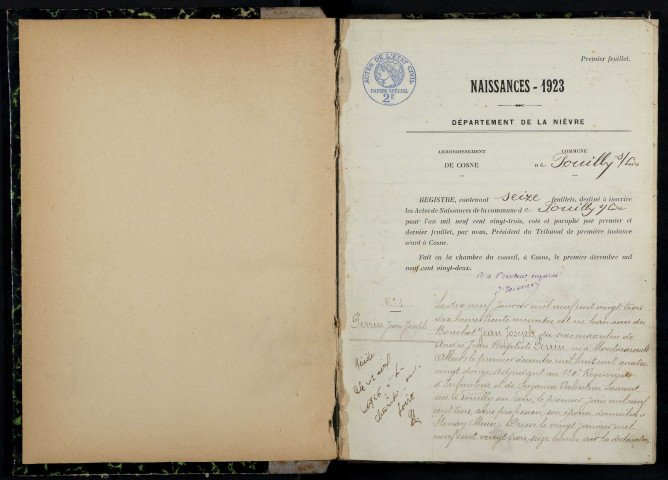 Premier feuillet.
ACTES DE L'ÉTAT CIVIL
PAPIER SPÉCIAL
2F
NAISSANCES - 1923
DÉPARTEMENT DE LA NIÈVRE
ARRONDISSEMENT
DE COSNE
COMMUNE
DE Pouilly s/Loire
REGISTRE, contenant seize feuillets, destiné à inscrire
les Actes de Naissances de la commune de Pouilly s/Loire
pour l'an mil neuf cent vingt-trois, coté et paraphé par premier et
dernier feuillet, par nous, Président du Tribunal de première instance
séant à Cosne.
Fait en la chambre du conseil, à Cosne, le premier décembre mil
neuf cent vingt-deux.
N° 1
Perrin Jean Joseph
Le dix neuf janvier mil neuf cent vingt trois
dix heures trente minutes est né
Jean Joseph, du sexe masculin de
André Jean Baptiste Perrin, né à
Allier, le premier décembre mil huit cent quatre
vingt douze, adjudant au Régiment
d'Infanterie et de Suzanne Valentine
née à Pouilly sur Loire, le premier juin mil neuf
cent trois, sans profession, son épouse, domiciliés à
Stenay Meuse. Dressé le vingt janvier mil
neuf cent vingt trois, seize heures sur la déclaration